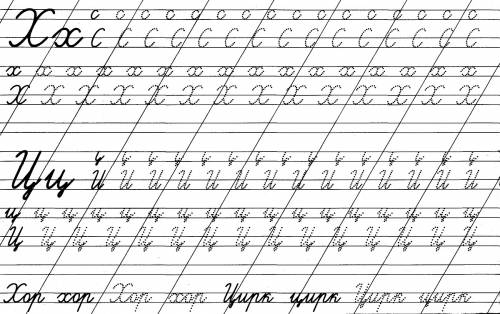 Х х с с с с с с с с с с с с с с с с
С С С С С С С С С С С С С С С
х х х х х х х х х х х х х х х х х х х х
Х Х Х Х Х Х Х Х Х Х Х Х Х Х
Ц ц
И И И И И И И И И И И И И И
ц ц ц ц ц ц ц ц ц ц ц ц ц ц ц ц ц
Ц Ц Ц Ц Ц Ц Ц Ц Ц Ц Ц Ц Ц Ц Ц
Хор хор Хор хор Цирк цирк Цирк цирк